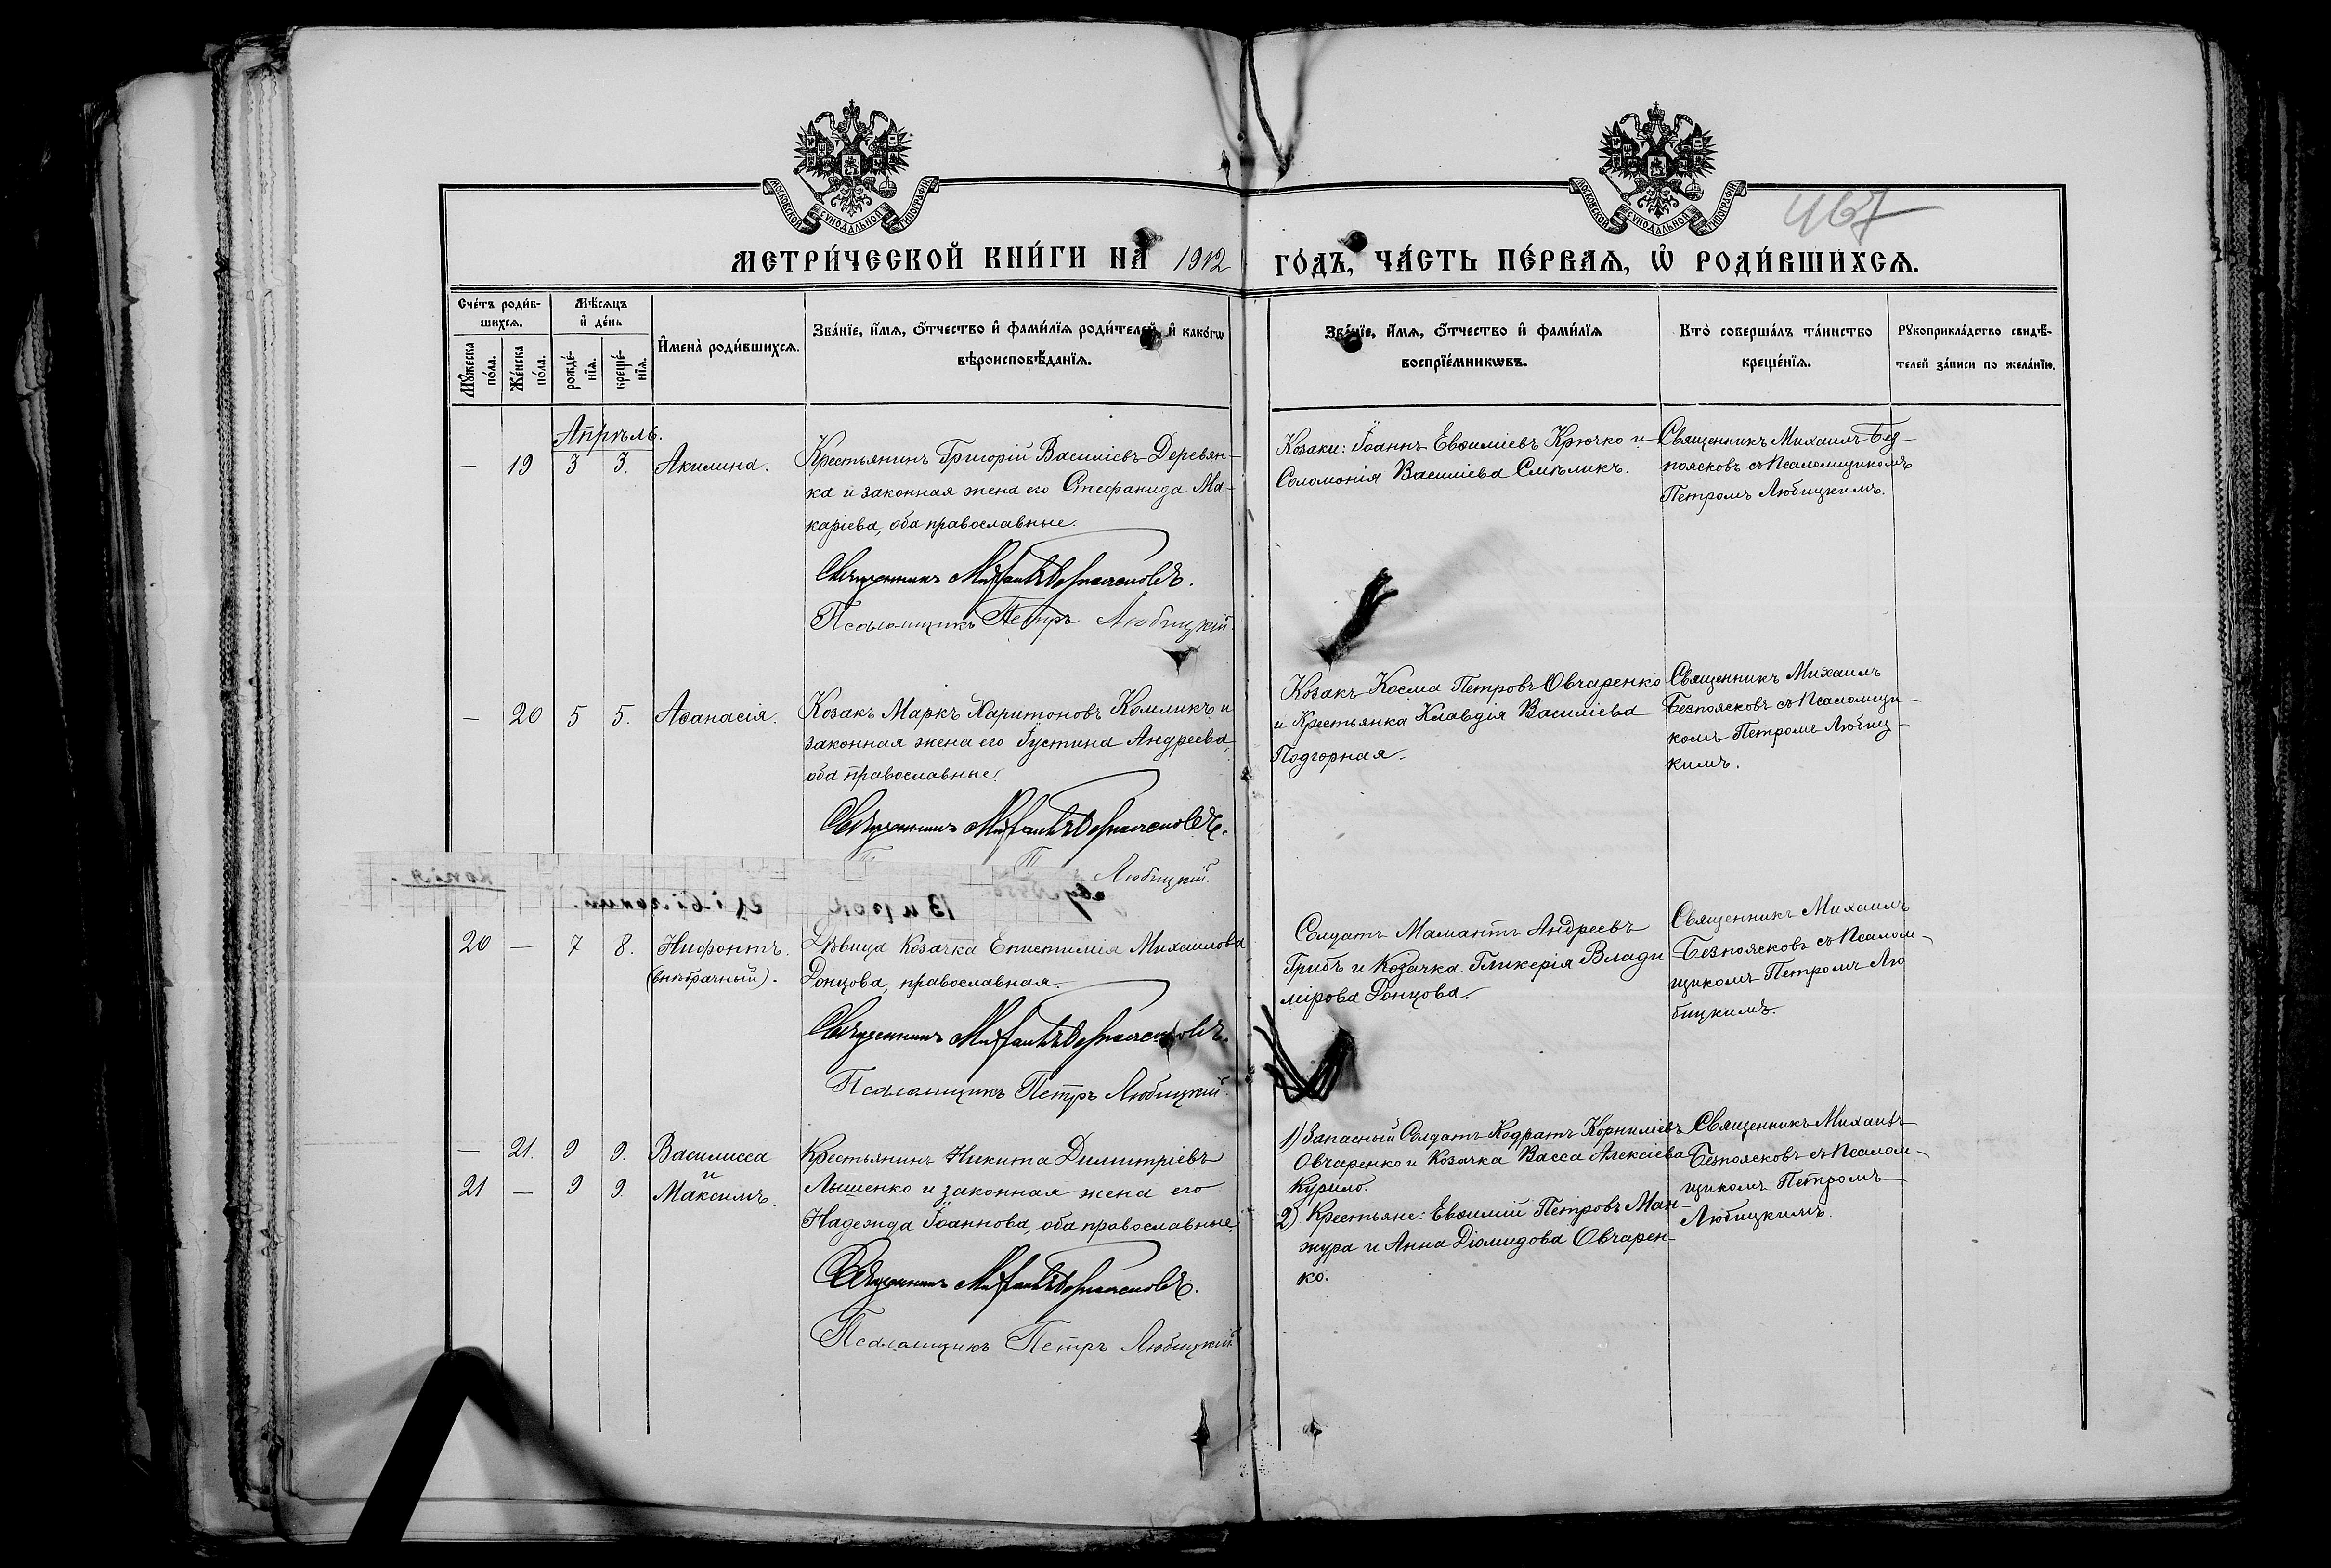 МОСКОВСКОЙ СѴНОДАЛЬНОЙ ТИПОГРАФІИ
МОСКОВСКОЙ СѴНОДАЛЬНОЙ ТИПОГРАФІИ
467
МЕТРИ́ЧЕСКОЙ КНИ́ГИ НА̀ 1912 ГО́ДЪ, ЧА́СТЬ ПЕ́РВАѦ, Ѡ҆ РОДИ́ВШИХСѦ.
Сче́тъ роди́в-
шихсѧ.
Мꙋ́жеска по́ла.
Же́нска по́ла.
Мѣ́сѧцъ
и҆ де́нь
рожде́-
нїѧ.
креще́-
нїѧ.
И҆мена̀ роди́вшихсѧ.
Зва́нїе, и҆́мѧ, ѻ҆́тчество и҆ фами́лїѧ роди́телей, и҆ како́гѡ
вѣроисповѣ́данїѧ.
Зва́нїе, и҆́мѧ, ѻ҆́тчество и҆ фами́лїѧ
воспрїе́мникѡвъ.
Кто̀ соверша́лъ та́инство
креще́нїѧ.
Рꙋкоприкла́дство свидѣ́-
телей за́писи по жела́нїю.
Апрѣль.
— 19 3 3. Акилина.
Крестьянинъ Григорій Василіевъ Деревян-
ка и законная жена его Стефанида Ма-
каріева, оба православные.
Священникъ Михаилъ Безпоясковъ.
Псаломщикъ Петръ Любицкій.
Козаки: Іоаннъ Евѳиміевъ Крючко и
Соломонія Василіева Смѣликъ.
Священникъ Михаилъ Без-
поясковъ съ Псаломщикомъ
Петромъ Любицкимъ.
— 20 5 5. Аѳанасія.
Козакъ Маркъ Харитоновъ Комликъ и
законная жена его Іустина Андреева,
оба православные.
Священникъ Михаилъ Безпоясковъ.
Любицкій.
Козакъ Косма Петровъ Овчаренко
и Крестьянка Клавдія Василіева
Подгорная.
Священникъ Михаилъ
Безпоясковъ съ Псаломщи-
комъ Петромъ Любиц-
кимъ.
20 — 7 8. Нифонтъ.
(внѣбрачный).
Дѣвица Козачка Епистимія Михаилова
Донцова, православная.
Священникъ Михаилъ Безпоясковъ.
Псаломщикъ Петръ Любицкій.
Солдатъ Мамантъ Андреевъ
Грибъ и Козачка Гликерія Влади
мірова Донцова.
Священникъ Михаилъ
Безпоясковъ съ Псалом-
щикомъ Петромъ Лю
бицкимъ.
— 21. 9 9. Василисса
и
21 — 9 9. Максимъ.
Крестьянинъ Никита Димитріевъ
Лышенко и законная жена его
Надежда Іоаннова, оба православные.
Священникъ Михаилъ Безпоясковъ.
Псаломщикъ Петръ Любицкій.
1) Запасный Солдатъ Кодратъ Корниліевъ
Овчаренко и Козачка Васса Алексіева
Курило.
2) Крестьяне: Евѳимій Петровъ Ман-
жура и Анна Діомидова Овчарен-
ко.
Священникъ Михаилъ
Безпоясковъ съ Псалом-
щикомъ Петромъ
Любицкимъ.